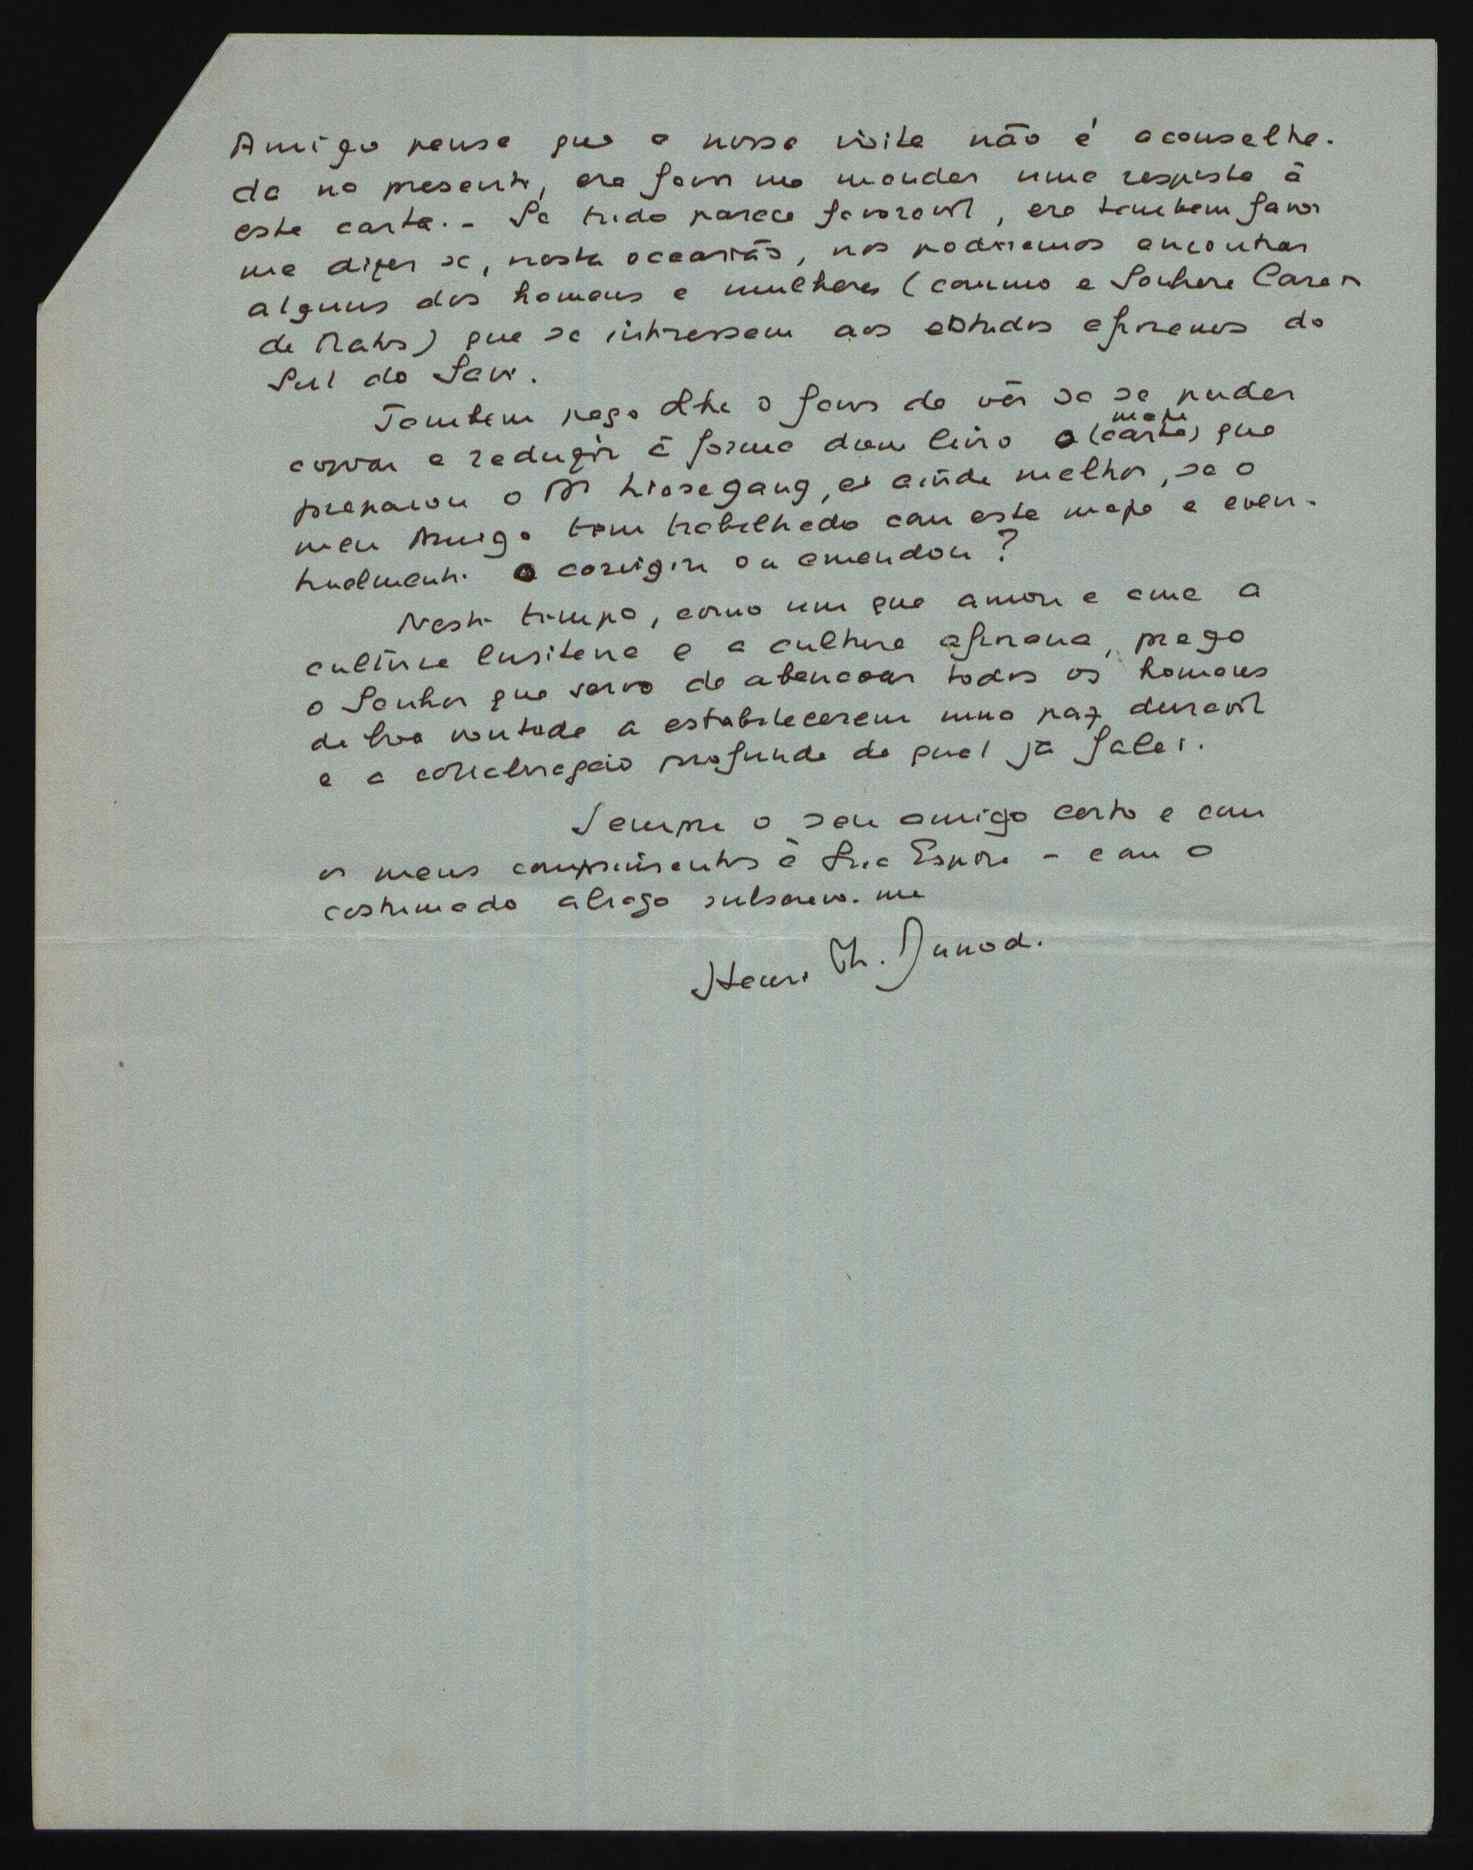 Amigo pensa que a nossa visita não é aconselha-
da no presente, era favor me mandar uma resposta à
esta carta. - Se tudo parece favoravel, era tambem favor
me dizer se, nesta occasião, nos podriamos encontrar
alguns dos homens e mulheres (commo a Senhora
de Matos) que se intressem aos estudos africanos do
Sul do Save.
Tambem peço lhe o favor de vêr se se puder
copiar e reduzir à forma dum livro o (carta) mapa que
preparou o Mr Liesegang, e ainda melhor, se o
meu Amigo tem trabalhado com este mapa e even-
tualmente o corrigiu ou emendou?
Neste tempo, como um que amou e ama a
cultura lusitana e a cultura africana, prego
o Senhor que serve de abencoar todos os homens
de boa vontade a estabelecerem uma paz duravel
e a collaboração profunda de qual ja falei.
Sempre o seu amigo certo e com
os meus comprimentos à Sua Esposa - com o
costumado abraço subscrevo-me
Henri Ph. Junod.